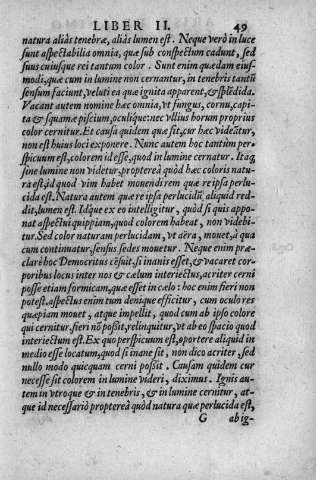 LIBER II. 49
natura aliàs tenebræ, aliàs lumen est. Neque verò in luce
sunt aspectabilia omnia, quæ sub conspectum cadunt, sed
suus cuiusque rei tantum color. Sunt enim quædam eius-
modi, quæ cum in lumine non cernantur, in tenebris tantũ
sensum faciunt, veluti ea quæ ignita apparent, & splẽdida.
Vacant autem nomine hæc omnia, vt fungus, cornu, capi-
ta & squamæ piscium, oculique: nec vllius horum proprius
color cernitur. Et causa quidem quæ sit, cur hæc videãtur,
non est huius loci exponere. Nunc autem hoc tantùm per-
spicuum est, colorem id esse, quod in lumine cernatur. Itaq;
sine lumine non videtur, propterea quòd hæc coloris natu-
ra est, id quod vim habet mouendi rem quæ reipsa perlu-
cida est. Natura autem quæ reipsa perlucidũ aliquid red-
dit, lumen est. Idque ex eo intelligitur, quòd si quis appo-
nat aspectui quippiam, quod colorem habeat, non videbi-
tur. Sed color naturam perlucidam, vt aëra, mouet, à qua
cum continuatur, sensus sedes mouetur. Neque enim præ-
clarè hoc Democritus cẽsuit, si inanis esset, & vacaret cor-
poribus locus inter nos & cælum interiectus, acriter cerni
posse etiam formicam, quæ esset in cælo: hoc enim fieri non
potest. aspectus enim tum denique efficitur, cum oculo res
quæpiam mouet, atque impellit, quod cum ab ipso colore
qui cernitur, fieri nõ possit, relinquitur, vt ab eo spacio quod
interiectum est. Ex quo perspicuum est, oportere aliquid in
medio esse locatum, quod si inane sit, non dico acriter, sed
nullo modo quicquam cerni possit. Causam quidem cur
necesse sit colorem in lumine videri, diximus. Ignis au-
tem in vtroque & in tenebris, & in lumine cernitur, at-
que id necessariò propterea quòd natura quæ perlucida est,
G ab ig-